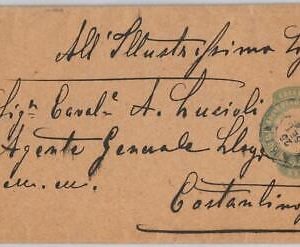 All'Illustrissimo
Sigr Cavalre A. Lucioli
Agente Generale Lloyd
m. m.
Costantinop